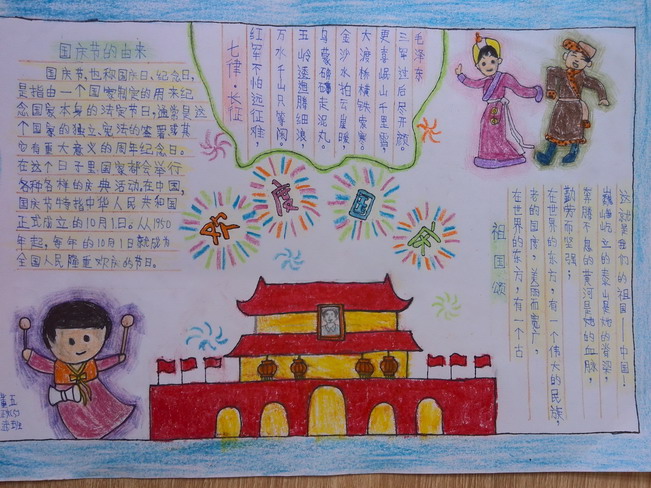 国庆节的由来
国庆节,也称国庆日、纪念日,
是指由一个国家制定的用来纪
念国家本身的法定节日,通常是这
个国家的独立、宪法的签署或其
它有重大意义的周年纪念日。
在这个日子里国家都会举行
各种各样的庆典活动,在中国,
国庆节特指中华人民共和国
正式成立的10月1日。从1950
年起,每年的10月1日就成为
全国人民隆重欢庆的节日。
七律·长征
红军不怕远征难,
万水千山只等闲。
五岭逶迤腾细浪,
乌蒙磅礴走泥丸。
金沙水拍云崖暖,
大渡桥横铁索寒。
更喜岷山千里雪,
三军过后尽开颜。
毛泽东
国
祖国颂
在世界的东方,有一个古
老的国度,美丽而宽广,
在世界的东方,有一个伟大的民族,
勤劳而坚强;
奔腾不息的黄河是她的血脉,
巍峨屹立的泰山是她的脊梁,
这就是我们的祖国——中国!